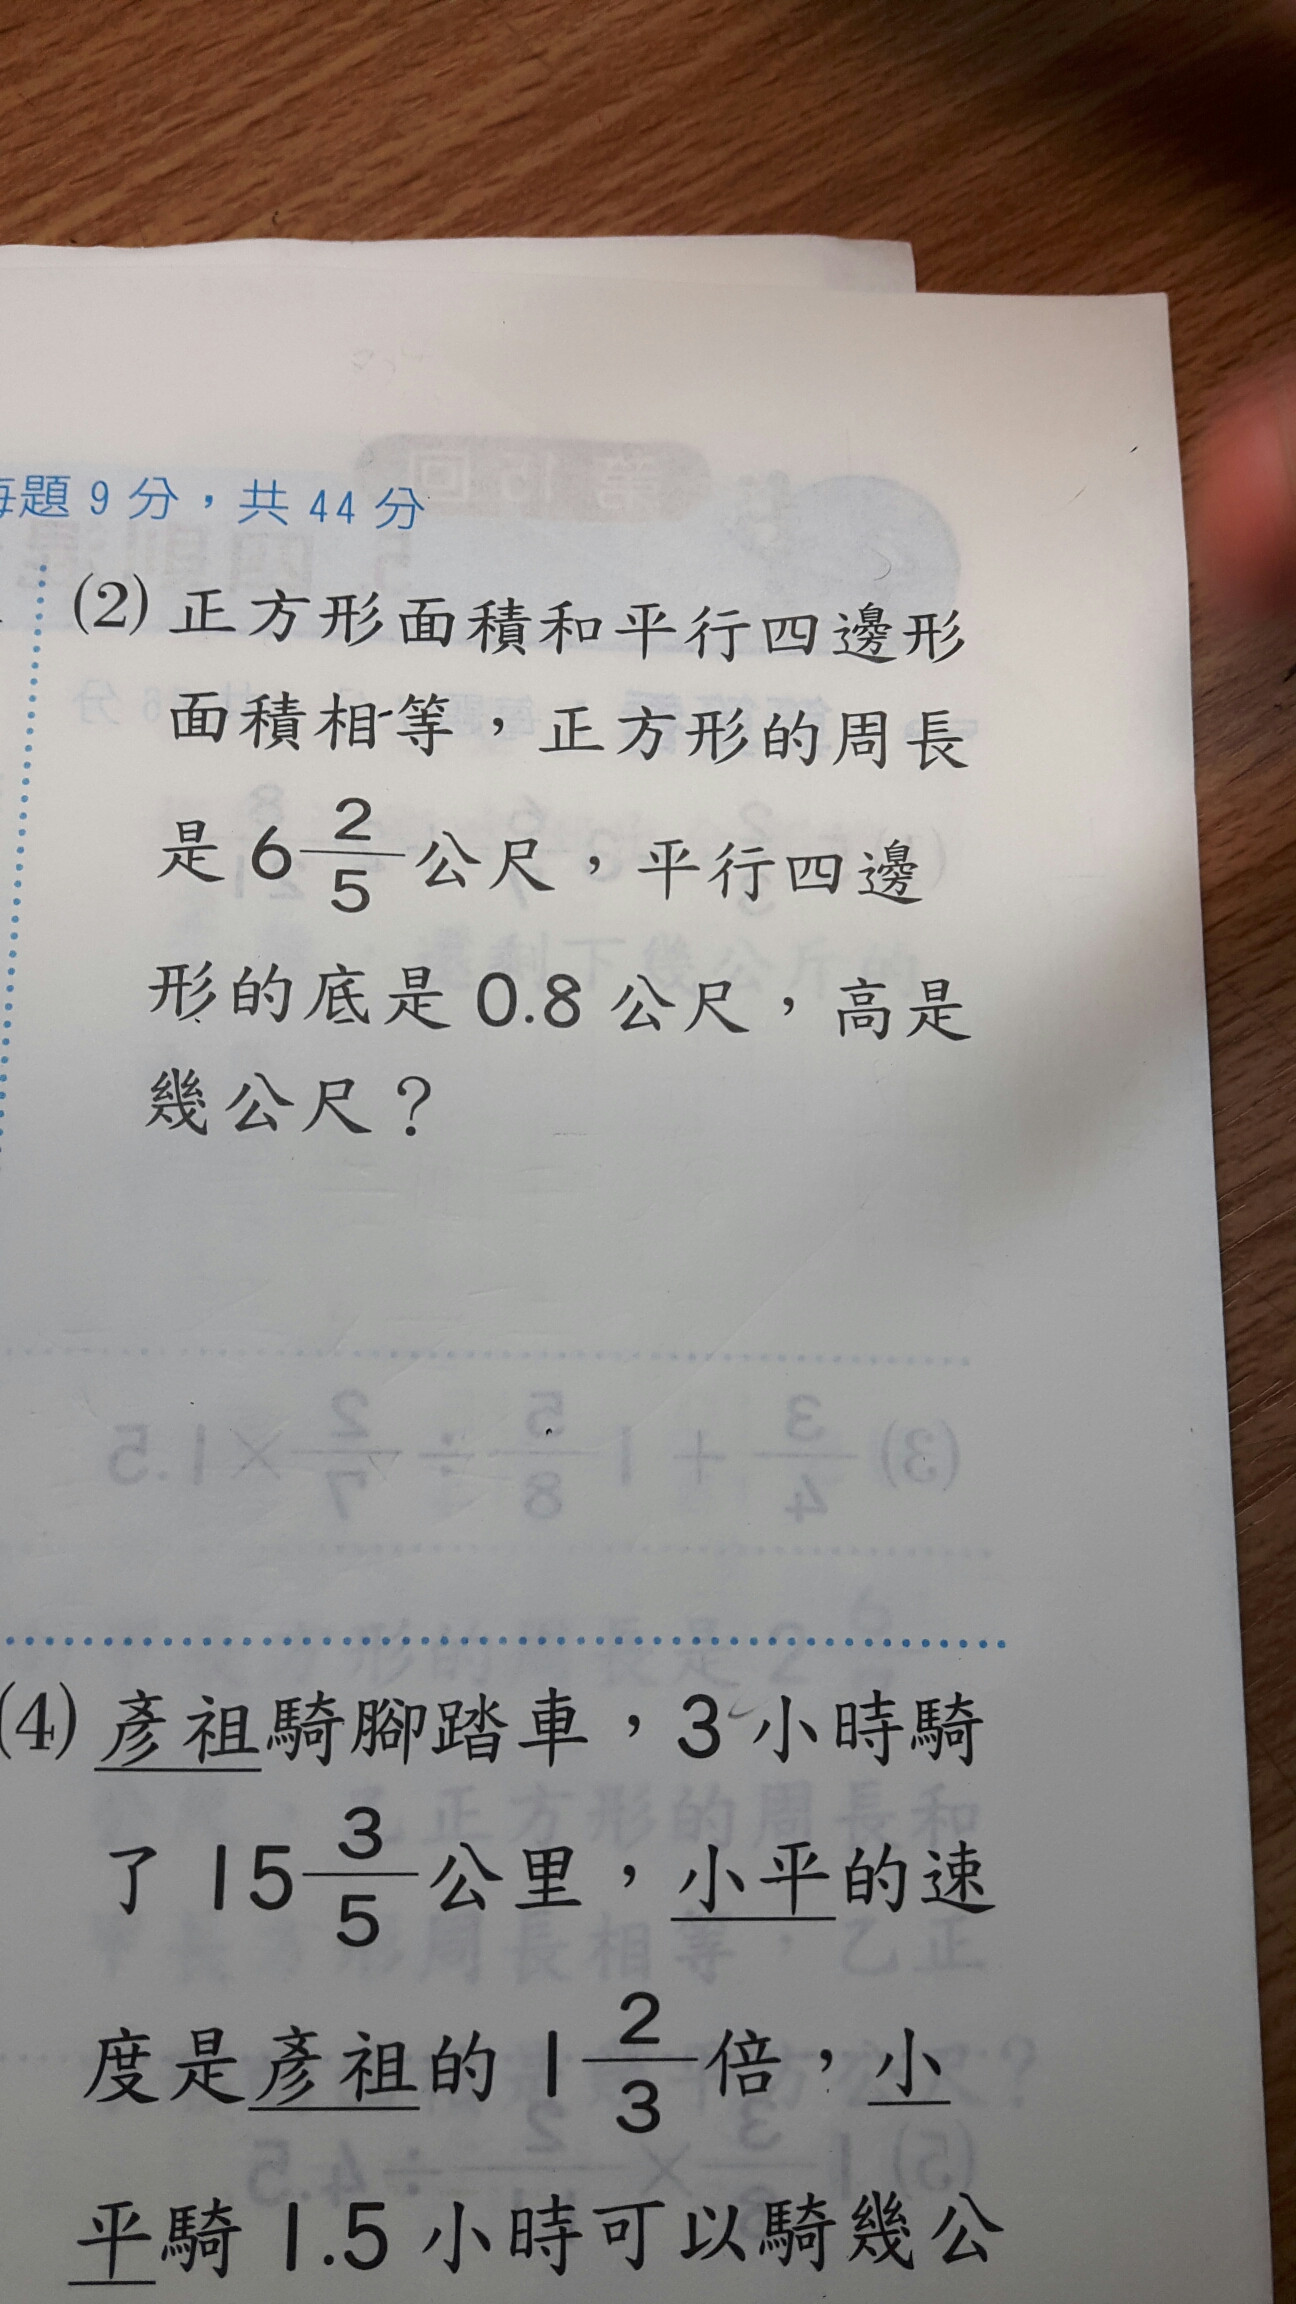 每題9分，共44分
(2) 正方形面積和平行四邊形
面積相等，正方形的周長
是 6 2/5 公尺，平行四邊
形的底是 0.8 公尺，高是
幾公尺？
(4) 彥祖騎腳踏車，3 小時騎
了 15 3/5 公里，小平的速
度是彥祖的 1 2/3 倍，小
平騎 1.5 小時可以騎幾公